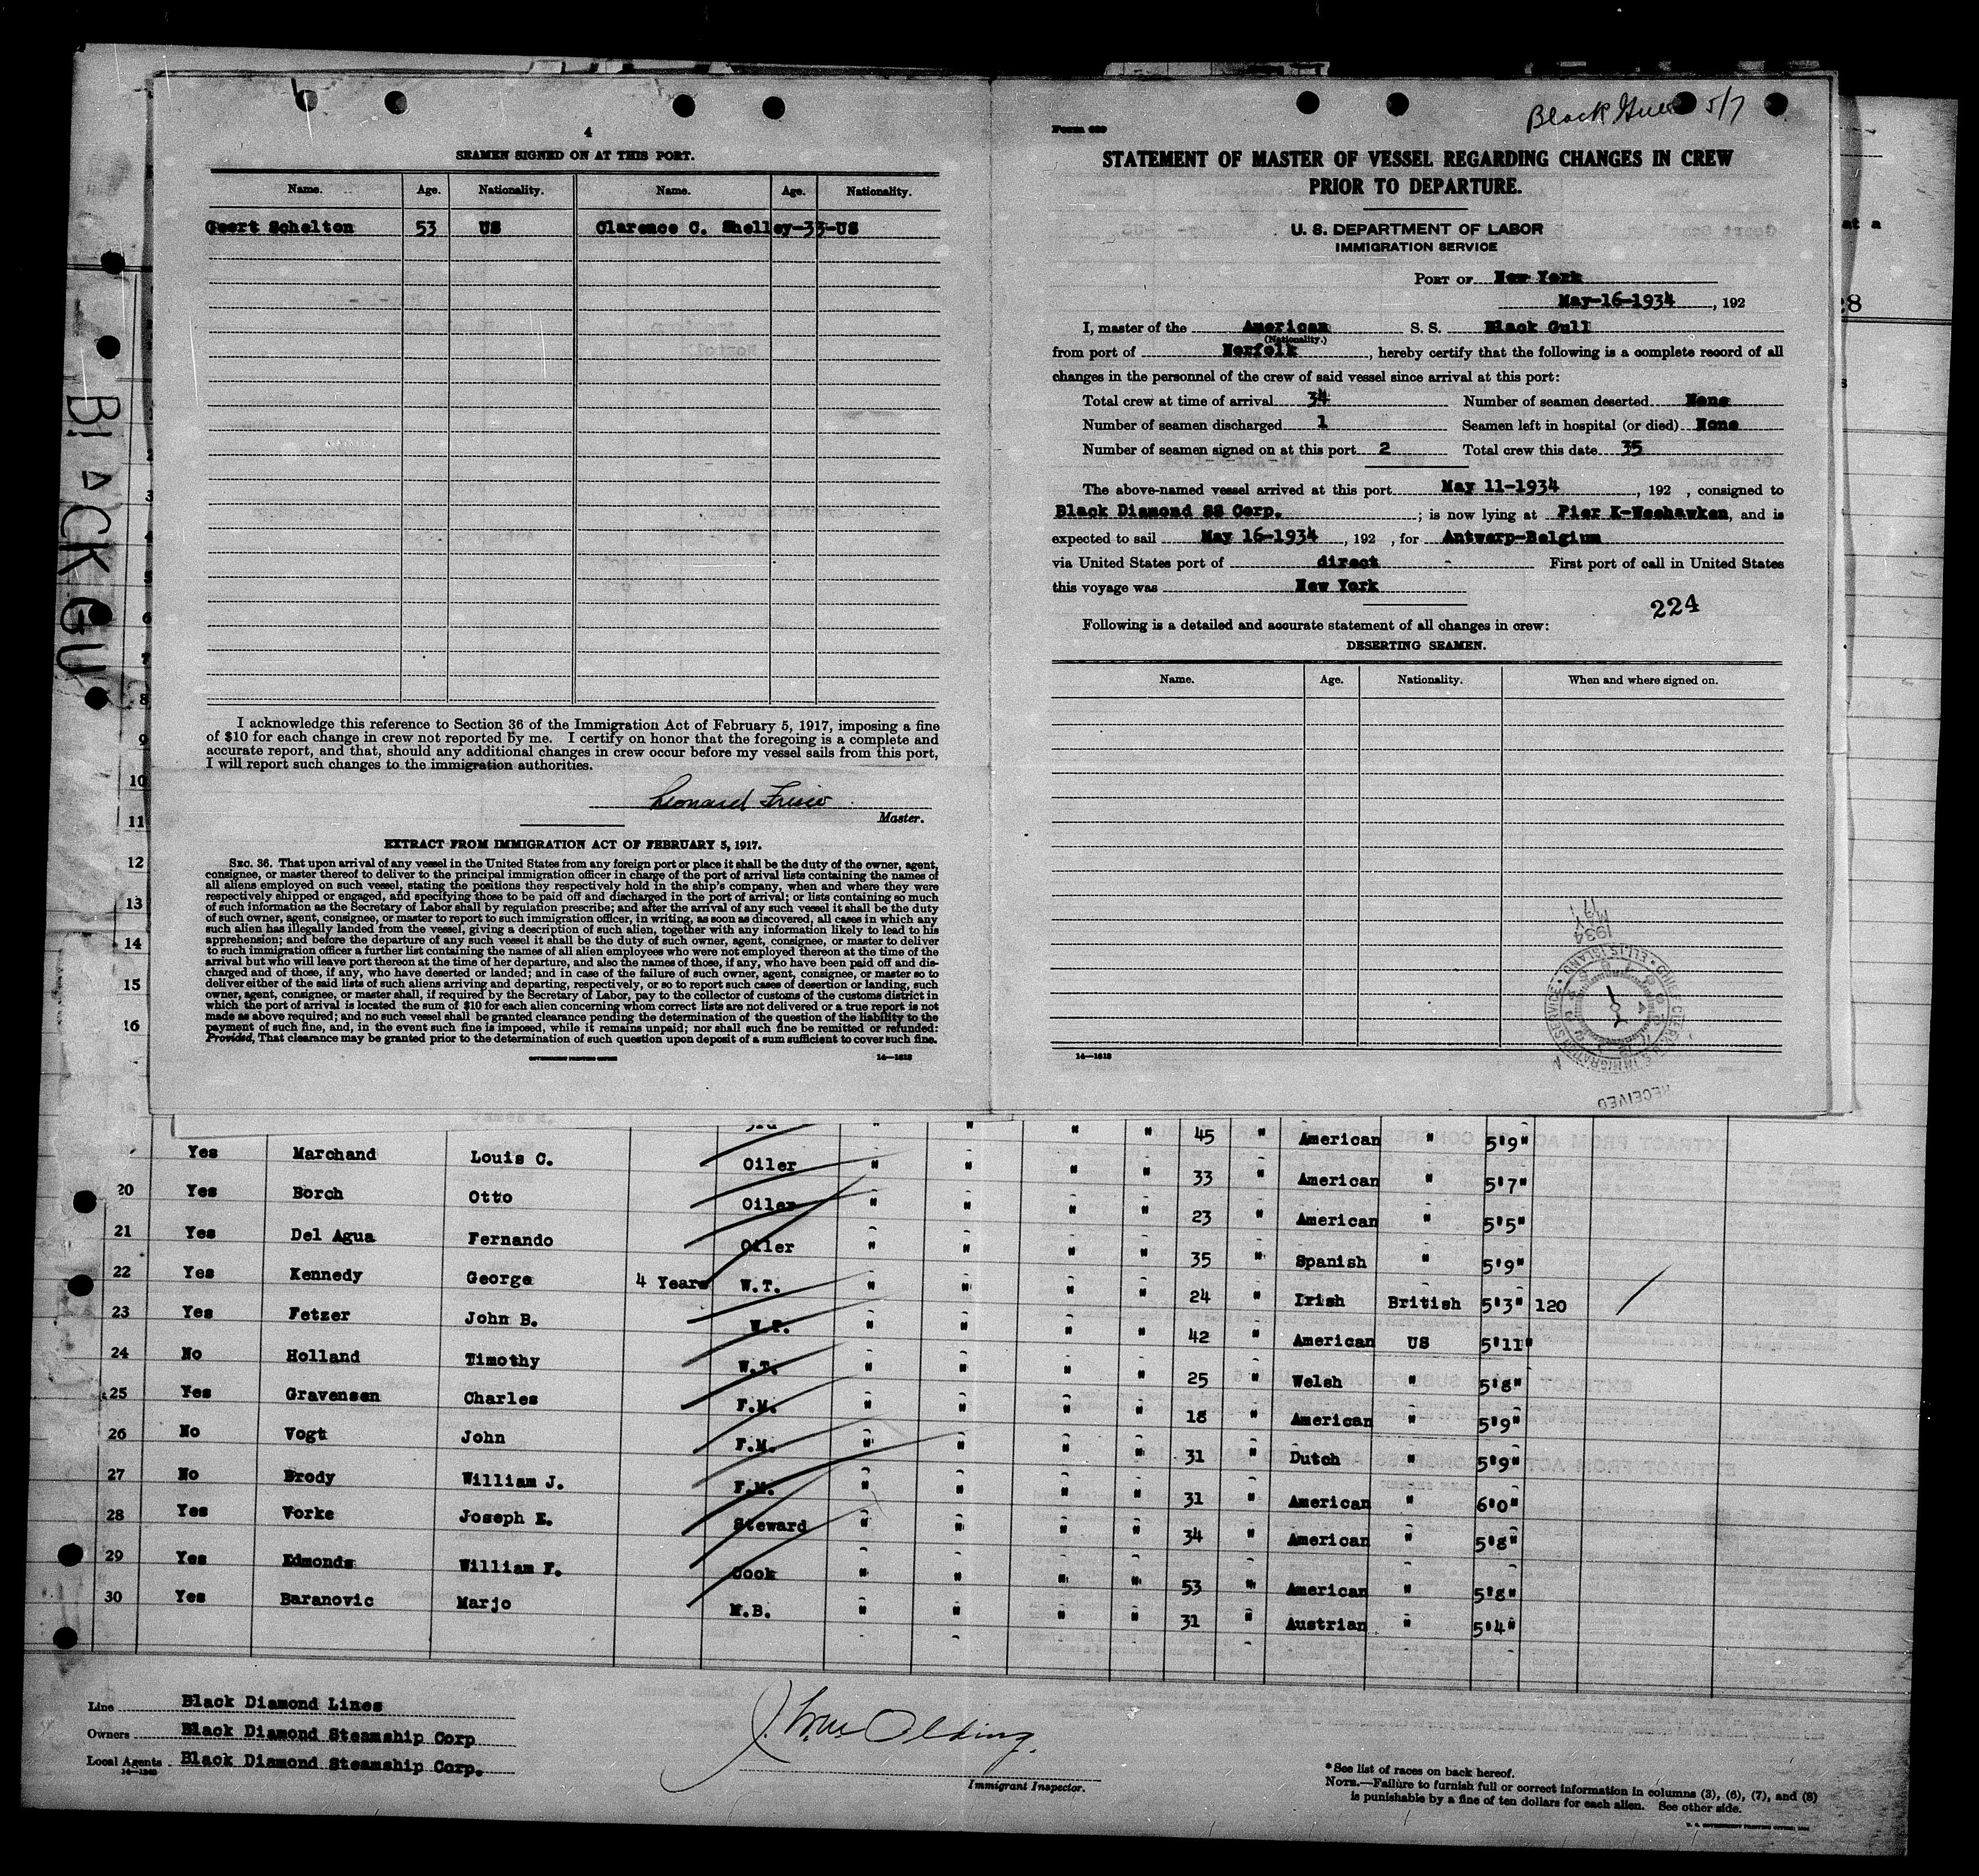 4
SEAMEN SIGNED ON AT THIS PORT.
Name. Age. Nationality. Name. Age. Nationality.
Geert Schelton 53 US Clarence C. Shelley-33-US
I acknowledge this reference to Section 36 of the Immigration Act of February 5, 1917, imposing a fine
of $10 for each change in crew not reported by me. I certify on honor that the foregoing is a complete and
accurate report, and that, should any additional changes in crew occur before my vessel sails from this port,
I will report such changes to the immigration authorities.
Leonard
Master.
EXTRACT FROM IMMIGRATION ACT OF FEBRUARY 5, 1917.
SEC. 36. That upon arrival of any vessel in the United States from any foreign port or place it shall be the duty of the owner, agent,
consignee, or master thereof to deliver to the principal immigration officer in charge of the port of arrival lists containing the names of
all aliens employed on such vessel, stating the positions they respectively hold in the ship's company, when and where they were
respectively shipped or engaged, and specifying those to be paid off and discharged in the port of arrival; or lists containing so much
of such information as the Secretary of Labor shall by regulation prescribe; and after the arrival of any such vessel it shall be the duty
of such owner, agent, consignee, or master to report to such immigration officer, in writing, as soon as discovered, all cases in which any
such alien has illegally landed from the vessel, giving a description of such alien, together with any information likely to lead to his
apprehension; and before the departure of any such vessel it shall be the duty of such owner, agent, consignee, or master to deliver
to such immigration officer a further list containing the names of all alien employees who were not employed thereon at the time of the
arrival but who will leave port thereon at the time of her departure, and also the names of those, if any, who have been paid off and dis-
charged and of those, if any, who have deserted or landed; and in case of the failure of such owner, agent, consignee, or master so to
deliver either of the said lists of such aliens arriving and departing, respectively, or so to report such cases of desertion or landing, such
owner, agent, consignee, or master shall, if required by the Secretary of Labor, pay to the collector of customs of the customs district in
which the port of arrival is located the sum of $10 for each alien concerning whom correct lists are not delivered or a true report is not
made as above required; and no such vessel shall be granted clearance pending the determination of the question of the liability to the
payment of such fine, and, in the event such fine is imposed, while it remains unpaid; nor shall such fine be remitted or refunded:
Provided, That clearance may be granted prior to the determination of such question upon deposit of a sum sufficient to cover such fine.
GOVERNMENT PRINTING OFFICE 14—1818
Black Gull 5/7
Form 689
STATEMENT OF MASTER OF VESSEL REGARDING CHANGES IN CREW
PRIOR TO DEPARTURE.
U. S. DEPARTMENT OF LABOR
IMMIGRATION SERVICE
PORT OF New York
May-16-1934, 192
I, master of the American S. S. Black Gull
(Nationality.)
from port of Norfolk, hereby certify that the following is a complete record of all
changes in the personnel of the crew of said vessel since arrival at this port:
Total crew at time of arrival 34 Number of seamen deserted None
Number of seamen discharged 1 Seamen left in hospital (or died) None
Number of seamen signed on at this port 2 Total crew this date 35
The above-named vessel arrived at this port May 11-1934, 192 , consigned to
Black Diamond SS Corp. ; is now lying at Pier K-Weehawken, and is
expected to sail May 16-1934, 192 , for Antwerp-Belgium
via United States port of direct - First port of call in United States
this voyage was New York
224
Following is a detailed and accurate statement of all changes in crew:
DESERTING SEAMEN.
Name. Age. Nationality. When and where signed on.
1934 MAY 17
CHIEF CLERK U.S. IMMIGRATION SERVICE • ELLIS ISLAND
RECEIVED
14—1818
BLACK GU
3
4
5
6
7
8
9
10
11
12
13
14
15
16
3rd " " " " 45 " American " 5'9"
Yes Marchand Louis C. Oiler " " " " 33 " American " 5'7"
20 Yes Borch Otto Oiler " " " " 23 " American " 5'5"
21 Yes Del Agua Fernando Oiler " " " " 35 " Spanish " 5'9"
22 Yes Kennedy George 4 Years W.T. " " " " 24 " Irish British 5'3" 120
23 Yes Fetzer John B. W.T. " " " " 42 " American US 5'11"
24 No Holland Timothy W.T. " " " " 25 " Welsh " 5'8"
25 Yes Gravensen Charles F.M. " " " " 18 " American " 5'9"
26 No Vogt John F.M. " " " " 31 " Dutch " 5'9"
27 No Brody William J. F.M. " " " " 31 " American " 6'0"
28 Yes Vorke Joseph E. Steward " " " " 34 " American " 5'8"
29 Yes Edmonds William F. Cook " " " " 53 " American " 5'8"
30 Yes Baranovic Marjo M.B. " " " " 31 " Austrian " 5'4"
Line Black Diamond Lines
Owners Black Diamond Steamship Corp
Local Agents Black Diamond Steamship Corp.
14—1240
J. Wm Olding.
Immigrant Inspector.
* See list of races on back hereof.
NOTE.—Failure to furnish full or correct information in columns (3), (6), (7), and (8)
is punishable by a fine of ten dollars for each alien. See other side.
U. S. GOVERNMENT PRINTING OFFICE